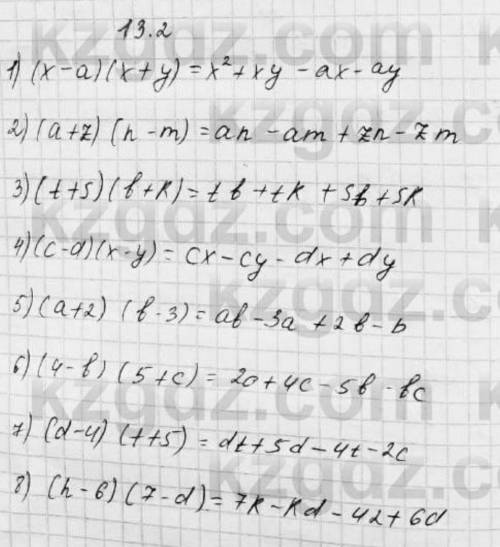 13.2
1) (x-a)(x+y) = x² + xy - ax - ay
2) (a+z)(n-m) = an - am + zn - zm
3) (t+5)(b+k) = tb + tk + 5b + 5k
4) (c-d)(x-y) = cx - cy - dx + dy
5) (a+2)(b-3) = ab - 3a + 2b - b
6) (4-b)(5+c) = 20 + 4c - 5b - bc
7) (d-4)(t+5) = dt + 5d - 4t - 2c
8) (h-6)(7-d) = 7k - kd - 42 + 6d